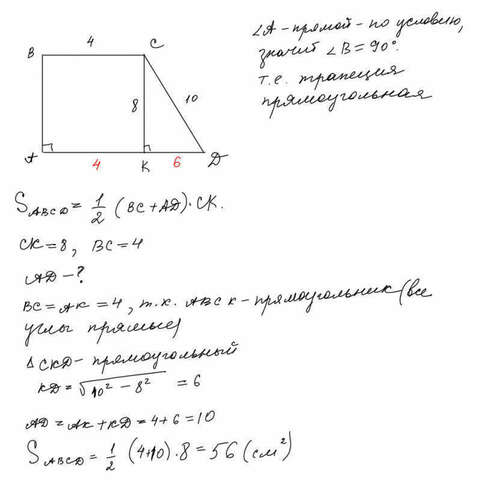 4
B
C
8
10
A
4
K
6
D
∠A - прямой - по условию,
значит ∠B = 90°.
т.е. трапеция
прямоугольная
S_ABCD = 1/2 (BC + AD) · CK.
CK = 8, BC = 4
AD - ?
BC = AK = 4, т.к. ABCK - прямоугольник (все
углы прямые)
△CKD - прямоугольный
KD = √(10² - 8²) = 6
AD = AK + KD = 4 + 6 = 10
S_ABCD = 1/2 (4+10) · 8 = 56 (см²)